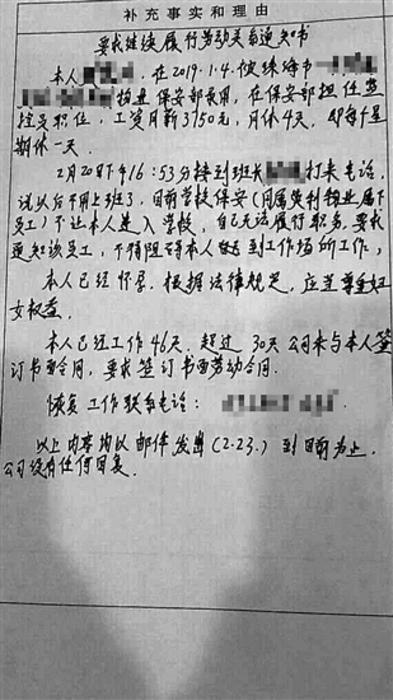 补充事实和理由
要求继续履行劳动关系通知书
本人 ,在2019.1.4.被珠海市
物业保安部录用,在保安部担任监
控员职位,工资月薪3750元,月休4天,即每个星
期休一天.
2月20日下午16:53分接到班长 打来电话,
说以后不用上班了,目前学校保安(同属 物业属下
员工)不让本人进入学校,自己无法履行职务,要求
通知该员工,不得阻碍本人 到工作场所工作,
本人已经怀孕,根据法律规定,应当尊重妇
女权益.
本人已经工作46天,超过30天公司未与本人签
订书面合同,要求签订书面劳动合同.
恢复工作联系电话:
以上内容均以邮件发出(2.23.)到目前为止,
公司没有任何回复.